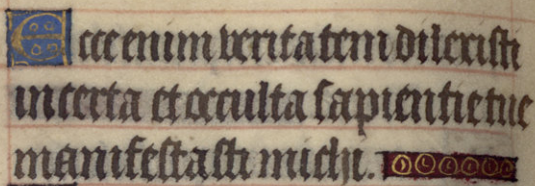 Ecce enim veritatem dilexisti
incerta et occulta sapientie tue
manifestasti michi.